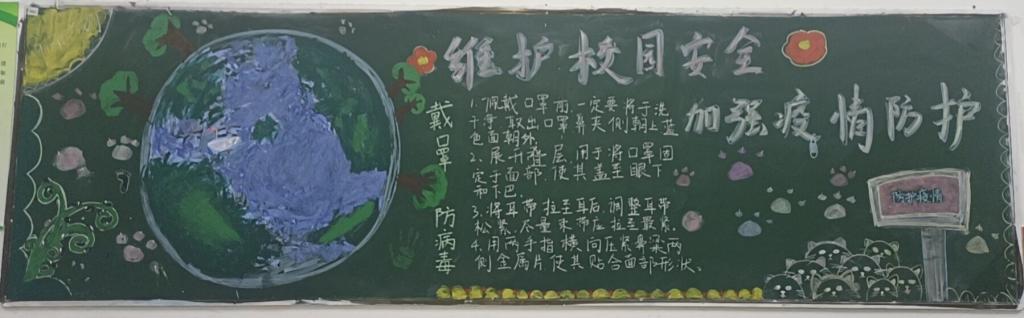 维护校园安全
加强疫情防护
戴口罩 防病毒
1.佩戴口罩前一定要将手洗
干净取出口罩鼻夹侧朝上蓝
色面朝外
2.展开叠层,用手将口罩固
定于面部,使其盖至眼下
和下巴.
3.将耳带拉至耳后,调整耳带
松紧.尽量末带应拉至最紧.
4.用两手指横向压紧鼻梁两
侧金属片使其贴合面部形状、
防护疫情